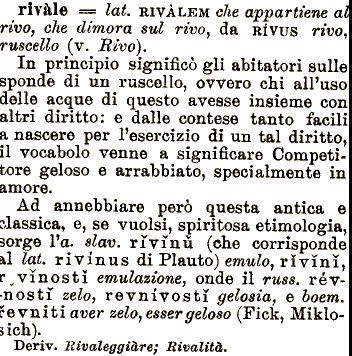 rivàle = lat. RIVÀLEM che appartiene al
rivo, che dimora sul rivo, da RÍVUS rivo,
ruscello (v. Rivo).
In principio significò gli abitatori sulle
sponde di un ruscello, ovvero chi all'uso
delle acque di questo avesse insieme con
altri diritto: e dalle contese tanto facili
a nascere per l'esercizio di un tal diritto,
il vocabolo venne a significare Competi-
tore geloso e arrabbiato, specialmente in
amore.
Ad annebbiare però questa antica e
classica, e, se vuolsi, spiritosa etimologia,
sorge l'a. slav. rĭvĭnŭ (che corrisponde
al lat. rivinus di Plauto) emulo, rĭvĭnĭ,
r vĭnostĭ emulazione, onde il russ. rév-
nostĭ zelo, revnívostĭ gelosia, e boem.
řevniti aver zelo, esser geloso (Fick, Miklo-
sich).
Deriv. Rivaleggiàre; Rivalità.